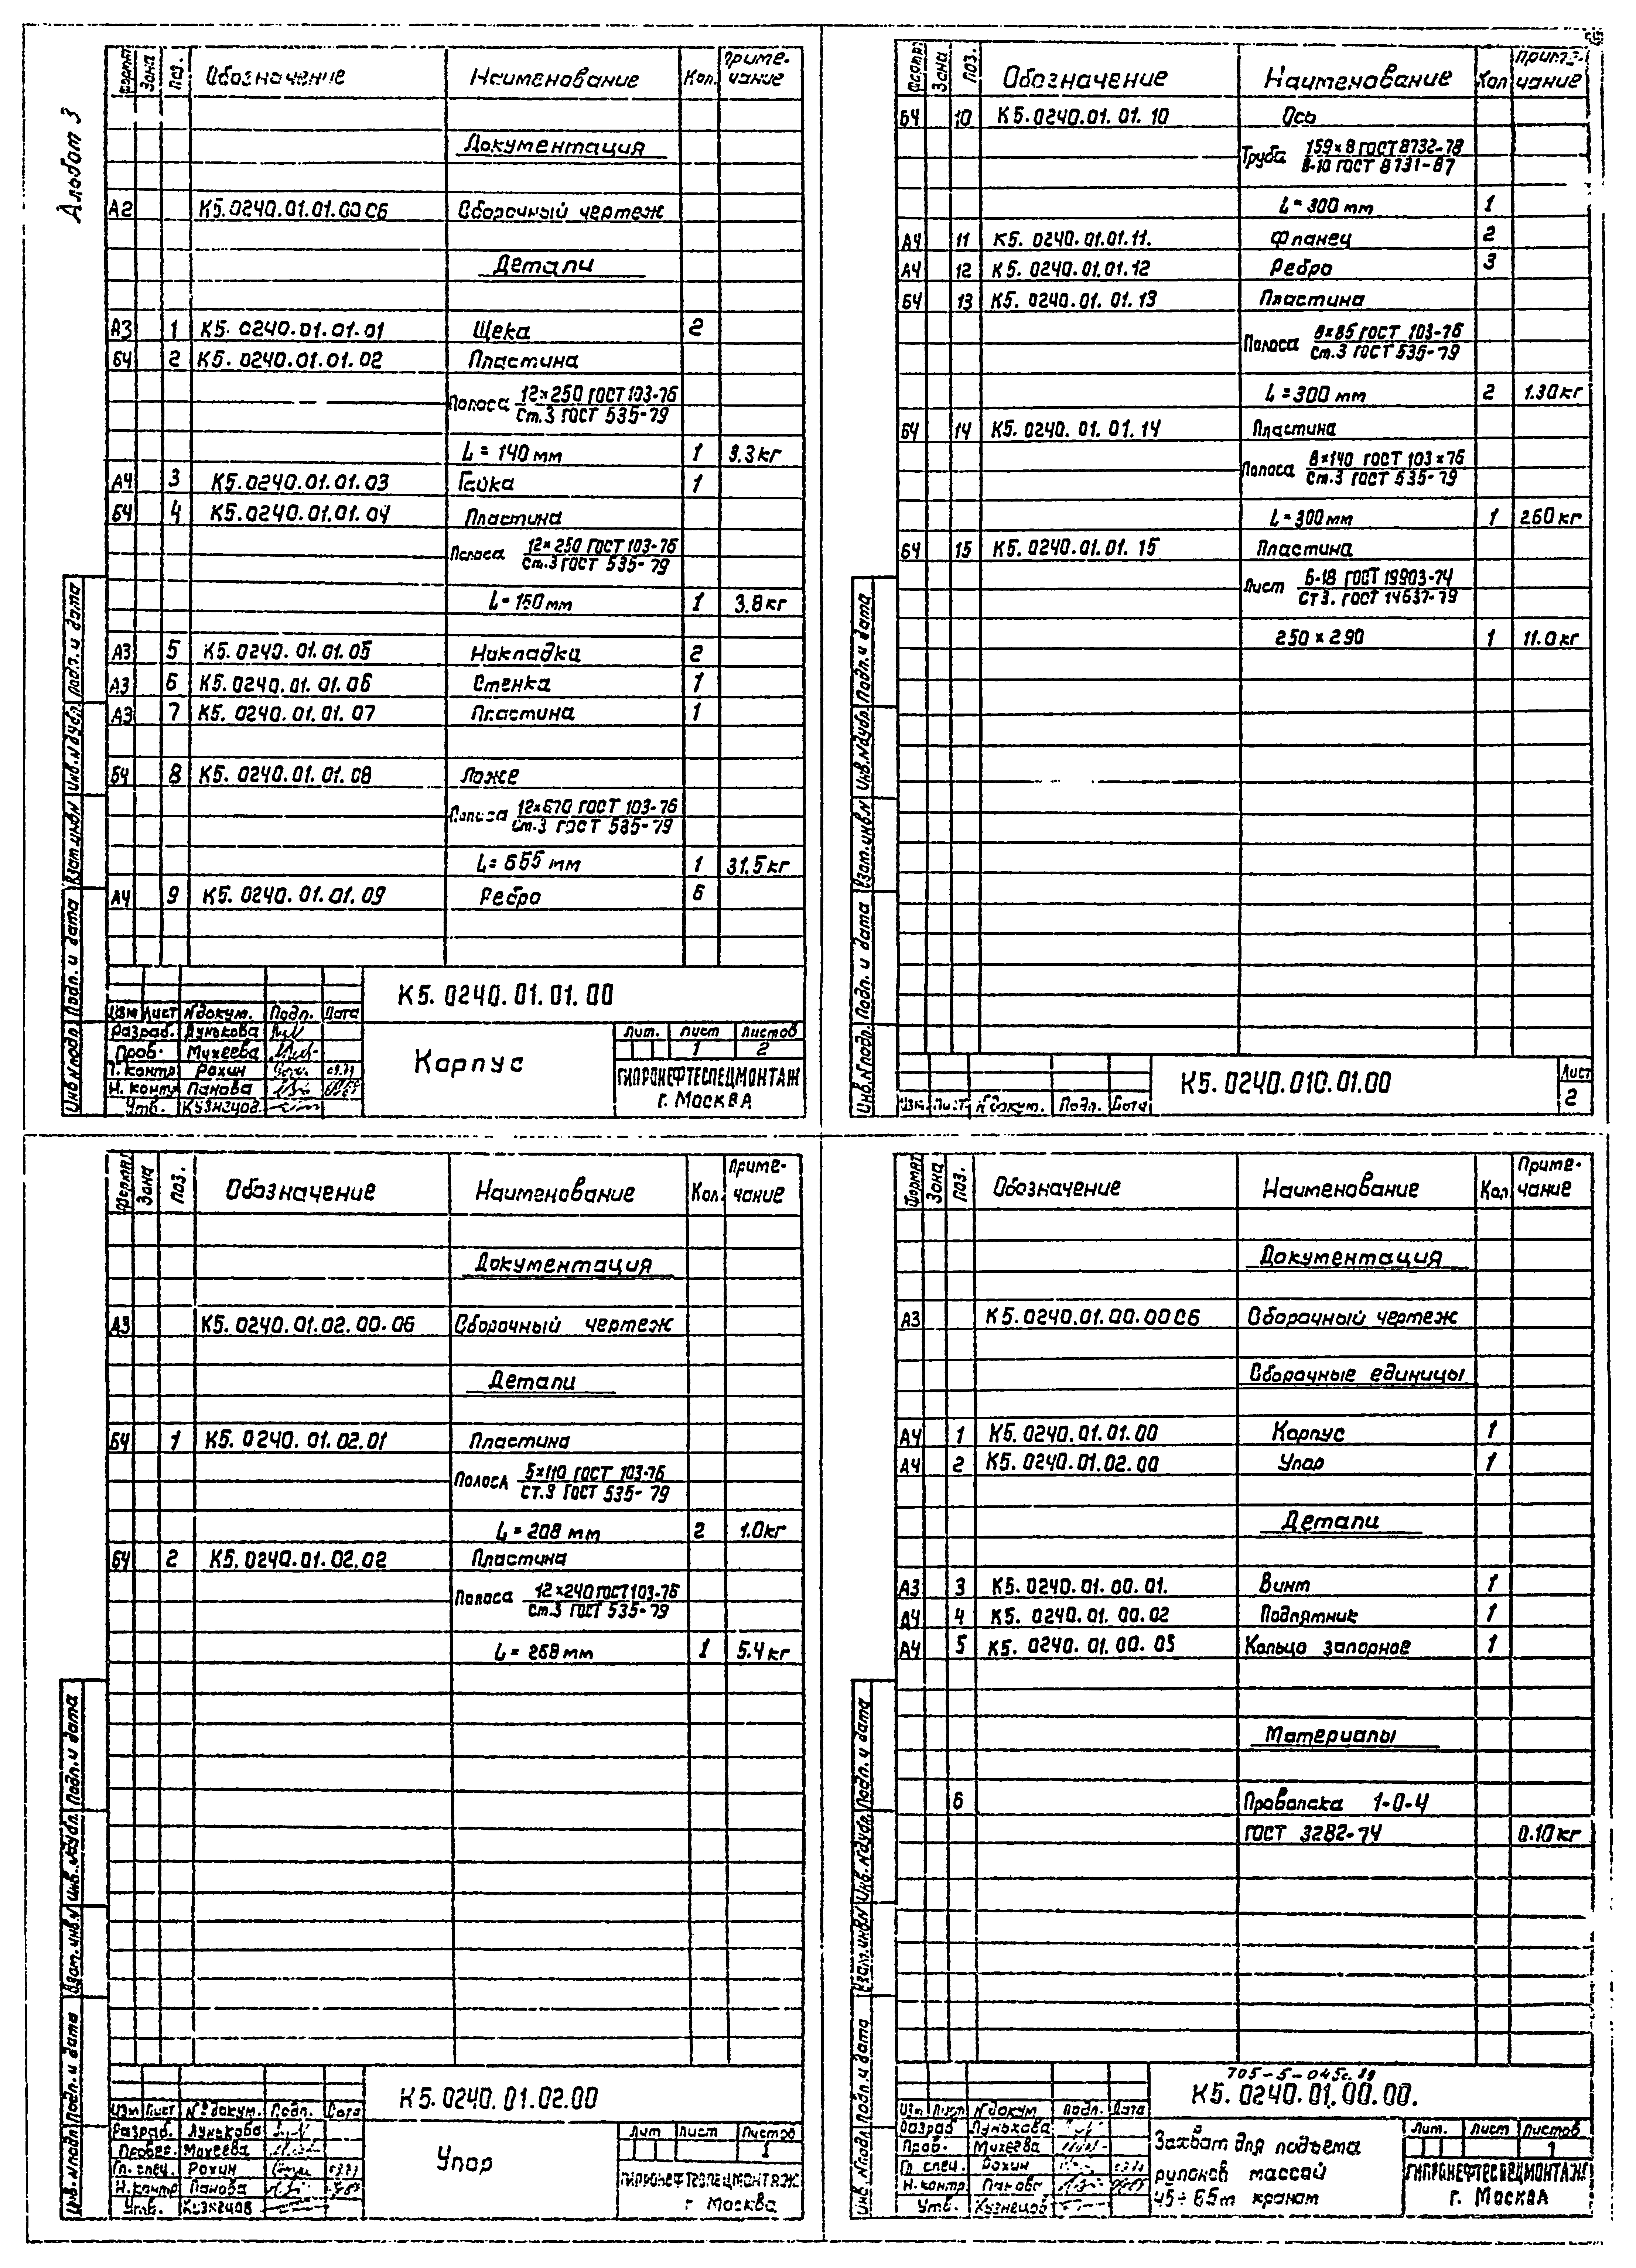 Альбом 3
Формат Зона Поз. Обозначение Наименование Кол. Приме-чание
Документация
А2 К5.0240.01.01.00 СБ Сборочный чертеж
Детали
А3 1 К5.0240.01.01.01 Щека 2
БЧ 2 К5.0240.01.01.02 Пластина
Полоса 12×250 ГОСТ 103-76
Ст.3 ГОСТ 535-79
L = 140 мм 1 3.3 кг
А4 3 К5.0240.01.01.03 Гайка 1
БЧ 4 К5.0240.01.01.04 Пластина
Полоса 12×250 ГОСТ 103-76
Ст.3 ГОСТ 535-79
L = 160 мм 1 3.8 кг
А3 5 К5.0240.01.01.05 Накладка 2
А3 6 К5.0240.01.01.06 Стенка 1
А3 7 К5.0240.01.01.07 Пластина 1
БЧ 8 К5.0240.01.01.08 Ложе
Полоса 12×670 ГОСТ 103-76
Ст.3 ГОСТ 535-79
L = 655 мм 1 31.5 кг
А4 9 К5.0240.01.01.09 Ребро 6
К5.0240.01.01.00
Изм Лист № докум. Подп. Дата
Разраб. Лунькова
Пров. Михеева
Рохин
Н. контр Панова
Утв. Кузнецов
Корпус
Лит. Лист Листов
1 2
ГИПРОНЕФТЕСПЕЦМОНТАЖ
г. Москва
Инв.№подл. Подп. и дата Взам.инв.№ Инв.№дубл. Подп. и дата
Формат Зона Поз. Обозначение Наименование Кол Приме-чание
БЧ 10 К5.0240.01.01.10 Ось
Труба 159×8 ГОСТ 8732-78
В-10 ГОСТ 8731-87
L = 300 мм 1
А4 11 К5.0240.01.01.11. Фланец 2
А4 12 К5.0240.01.01.12 Ребро 3
БЧ 13 К5.0240.01.01.13 Пластина
Полоса 8×85 ГОСТ 103-76
Ст.3 ГОСТ 535-79
L = 300 мм 2 1.30 кг
БЧ 14 К5.0240.01.01.14 Пластина
Полоса 8×140 ГОСТ 103×76
Ст.3 ГОСТ 535-79
L = 300 мм 1 2.60 кг
БЧ 15 К5.0240.01.01.15 Пластина
Лист Б-18 ГОСТ 19903-74
Ст3. ГОСТ 14637-79
250 × 290 1 11.0 кг
К5.0240.010.01.00
Изм Лист № докум. Подп. Дата
Лист
2
Инв.№подл. Подп. и дата Взам.инв.№ Инв.№дубл. Подп. и дата
Формат Зона Поз. Обозначение Наименование Кол. Приме-чание
Документация
А3 К5.0240.01.02.00.СБ Сборочный чертеж
Детали
БЧ 1 К5.0240.01.02.01 Пластина
Полоса 5×110 ГОСТ 103-76
Ст.3 ГОСТ 535-79
L = 208 мм 2 1.0 кг
БЧ 2 К5.0240.01.02.02 Пластина
Полоса 12×240 ГОСТ 103-76
Ст.3 ГОСТ 535-79
L = 268 мм 1 5.4 кг
К5.0240.01.02.00
Изм Лист № докум. Подп. Дата
Разраб. Лунькова
Провер. Михеева
Гл. спец. Рохин
Н.контр Панова
Утв. Кузнецов
Упор
Лит Лист Листов
1
ГИПРОНЕФТЕСПЕЦМОНТАЖ
г Москва
Инв.№подл Подп. и дата Взам.инв.№ Инв.№дубл. Подп. и дата
Формат Зона Поз. Обозначение Наименование Кол. Приме-чание
Документация
А3 К5.0240.01.00.00 СБ Сборочный чертеж
Сборочные единицы
А4 1 К5.0240.01.01.00 Корпус 1
А4 2 К5.0240.01.02.00 Упор 1
Детали
А3 3 К5.0240.01.00.01. Винт 1
А4 4 К5.0240.01.00.02 Подпятник 1
А4 5 К5.0240.01.00.03 Кольцо запорное 1
Материалы
6 Проволока 1-0-4
ГОСТ 3282-74 0.10 кг
705-5-045с.89
К5.0240.01.00.00.
Изм Лист № докум Подп. Дата
Разраб Лунькова
Пров. Михеева
Гл. спец. Рохин
Н.контр Панова
Утв. Кузнецов
Захват для подъема
рулонов массой
45÷65т краном
Лит. Лист Листов
1
ГИПРОНЕФТЕСПЕЦМОНТАЖ
г. Москва
Инв.№подл Подп. и дата Взам.инв№ Инв.№дубл. Подп. и дата